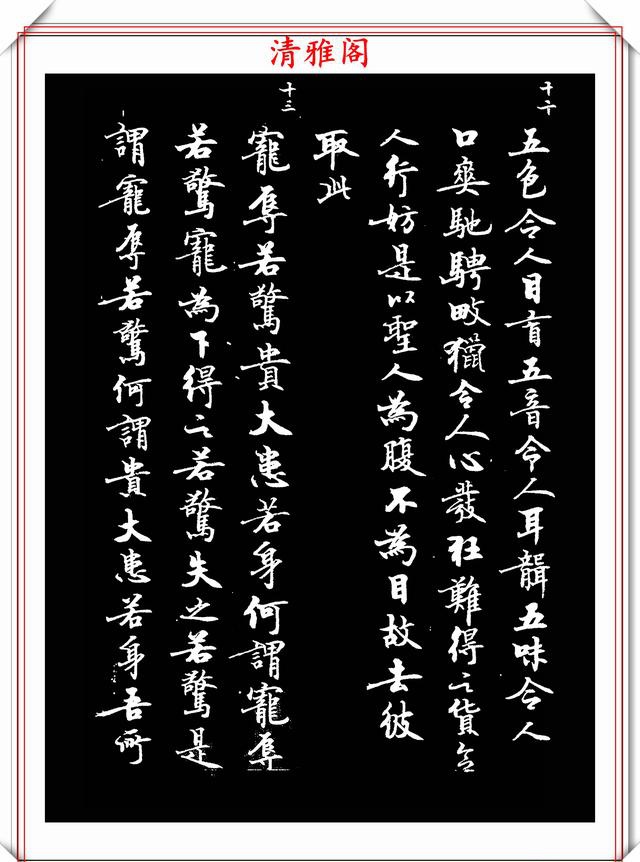 清雅阁
十二
五色令人目盲五音令人耳聾五味令人
口爽馳騁畋獵令人心發狂難得之貨令
人行妨是以聖人為腹不為目故去彼
取此
十三
寵辱若驚貴大患若身何謂寵辱
若驚寵為下得之若驚失之若驚是
謂寵辱若驚何謂貴大患若身吾所